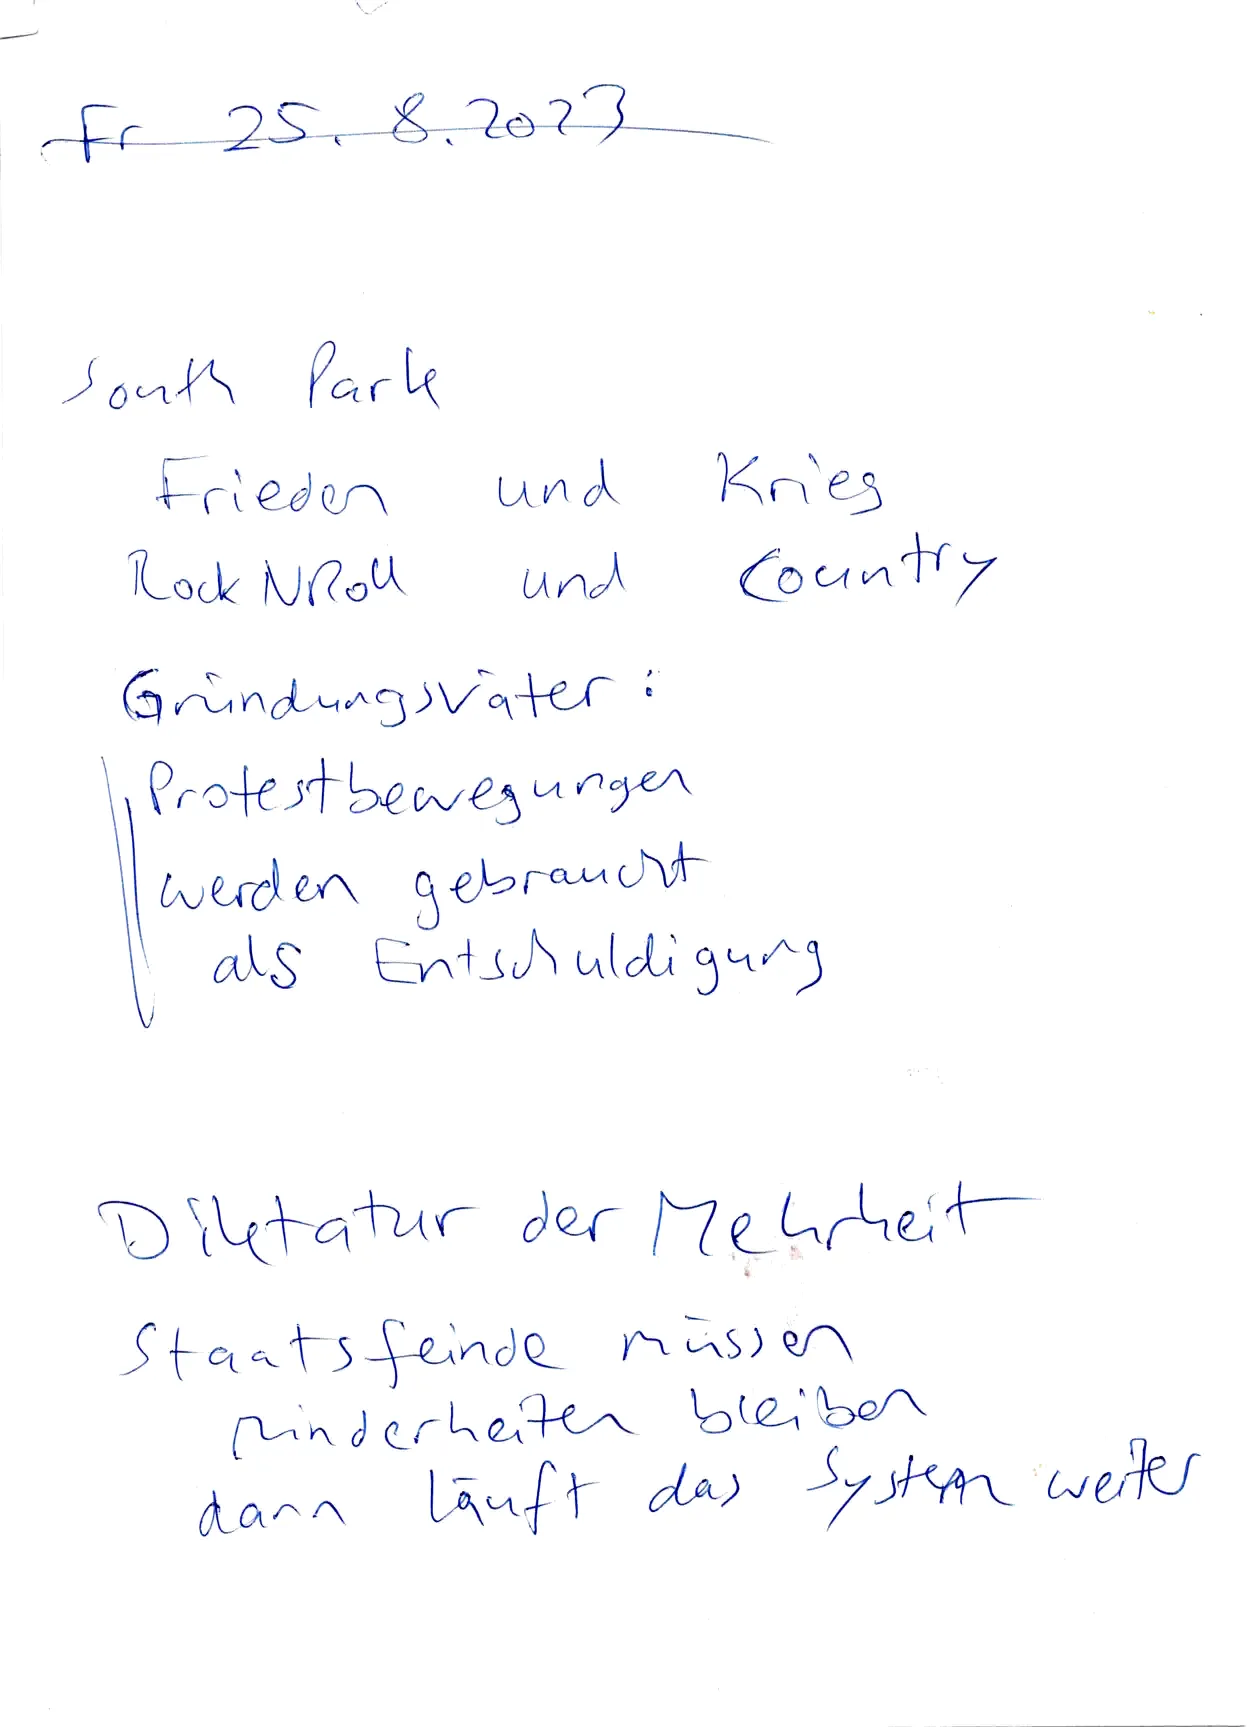 Fr 25. 8. 2023
South Park
Frieden und Krieg
Rock NRoll und Country
Gründungsväter:
Protestbewegungen
werden gebraucht
als Entschuldigung
Diktatur der Mehrheit
Staatsfeinde müssen
Minderheiten bleiben
dann läuft das System weiter